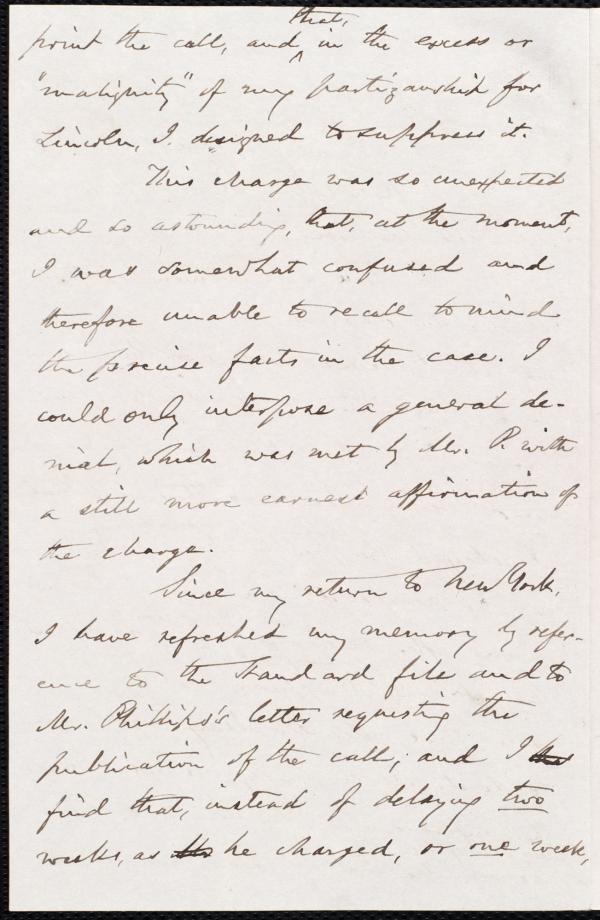 print the call, and that, in the excess or
"malignity" of my partizanship for
Lincoln, I designed to suppress it.
This charge was so unexpected
and so astounding, that, at the moment,
I was somewhat confused and
therefore unable to recall to mind
the precise facts in the case. I
could only interpose a general de-
nial, which was met by Mr. P. with
a still more earnest affirmation of
the charge.
Since my return to New York,
I have refreshed my memory by refer-
ence to the Standard file and to
Mr. Phillips's letter requesting the
publication of the call; and I
find that, instead of delaying two
weeks, as he charged, or one week,